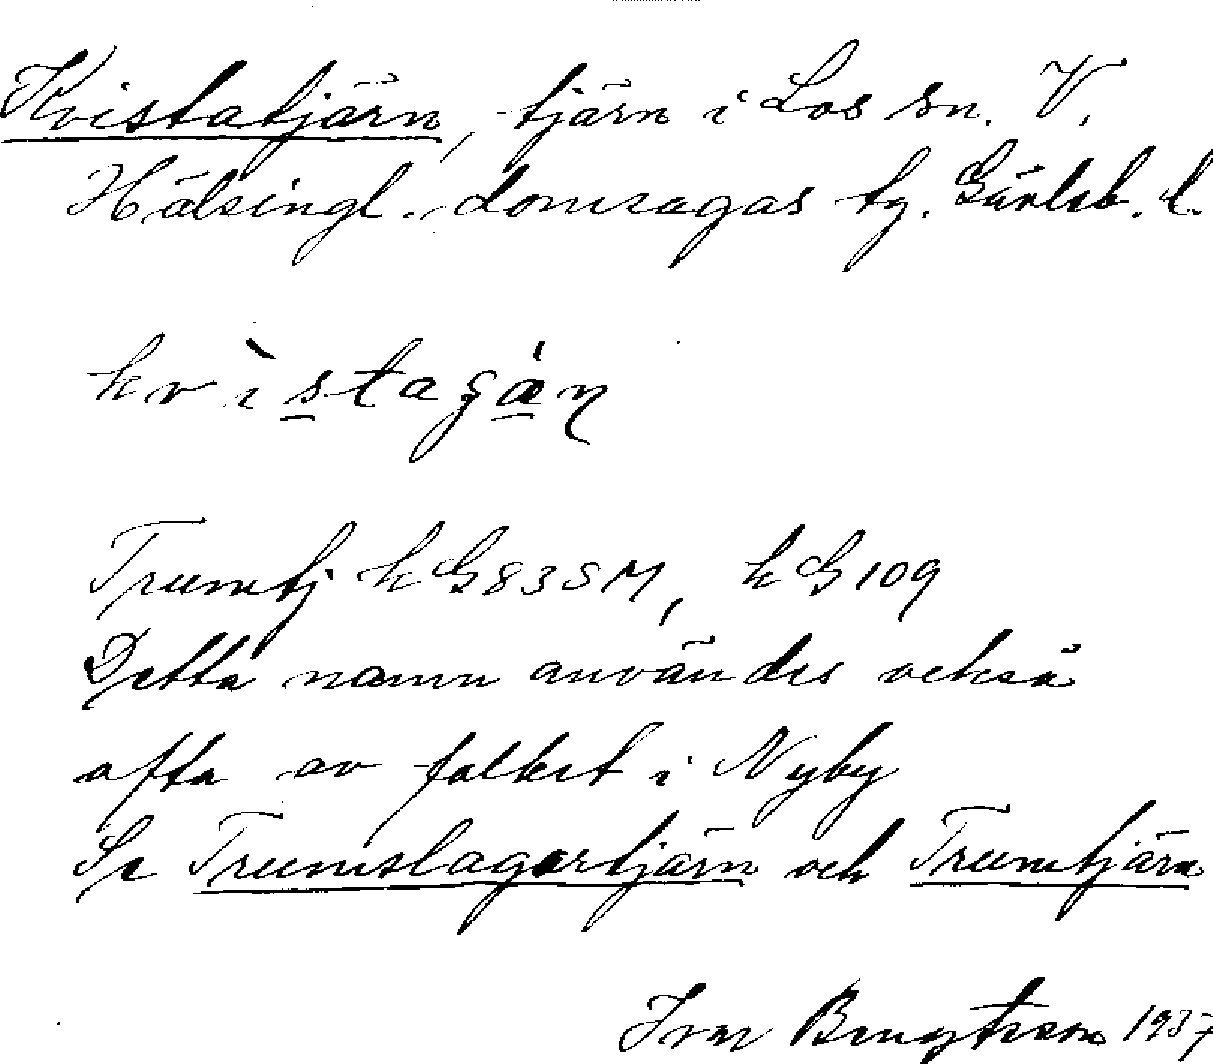 Kvistatjärn, tjärn i Los sn. V.
Hälsingl. domsagas tg. Gävleb. l.
kvìstaʂä́ɳ
Trumtj kG83SM, kG109
Detta namn användes också
ofta av folket i Nyby
Se Trumslagartjärn och Trumtjärn
Ivar Bengtsson 1937